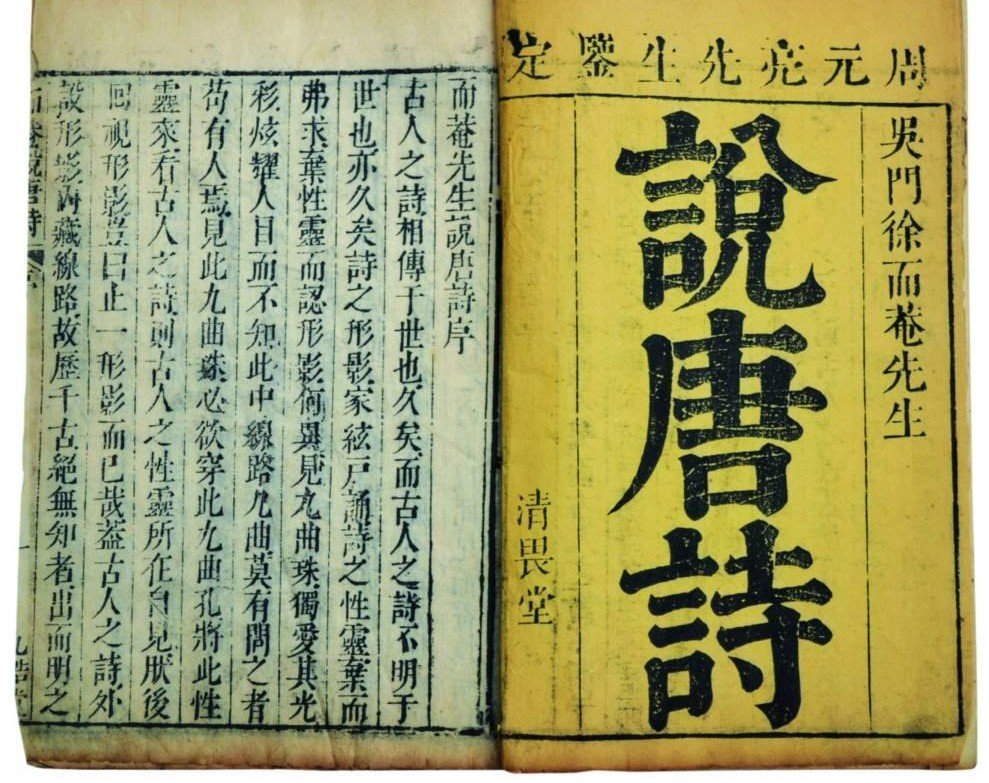 周元亮先生鑒定
吳門徐而菴先生
說唐詩
清畏堂
而菴先生說唐詩序
古人之詩相傳于世也久矣而古人之詩不明于
世也亦久矣詩之形影家絃戶誦詩之性靈棄而
弗求棄性靈而認形影何異見九曲珠獨愛其光
彩炫耀人目而不知此中線路九曲莫有問之者
茍有人焉見此九曲珠必欲穿此九曲孔將此性
靈來看古人之詩則古人之性靈所在自見然後
回視形影豈曰止一形影而已哉葢古人之詩外
設形影內藏線路故歷千古絕無知者出而明之
說唐詩